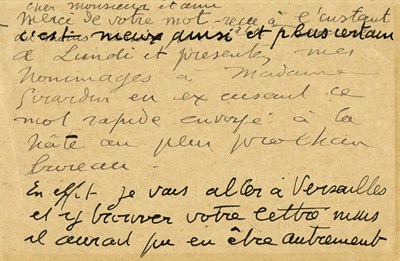 cher Monsieur et ami
Merci de votre mot - reçu à l'instant
c'est mieux ainsi et plus certain
a Lundi et presentez mes
hommages a Madame
Girardin en excusant ce
mot rapide envoyé à la
hâte au plus prochain
bureau.
En effet je vais aller à Versailles
et y trouver votre lettre mais
il aurait pu en être autrement